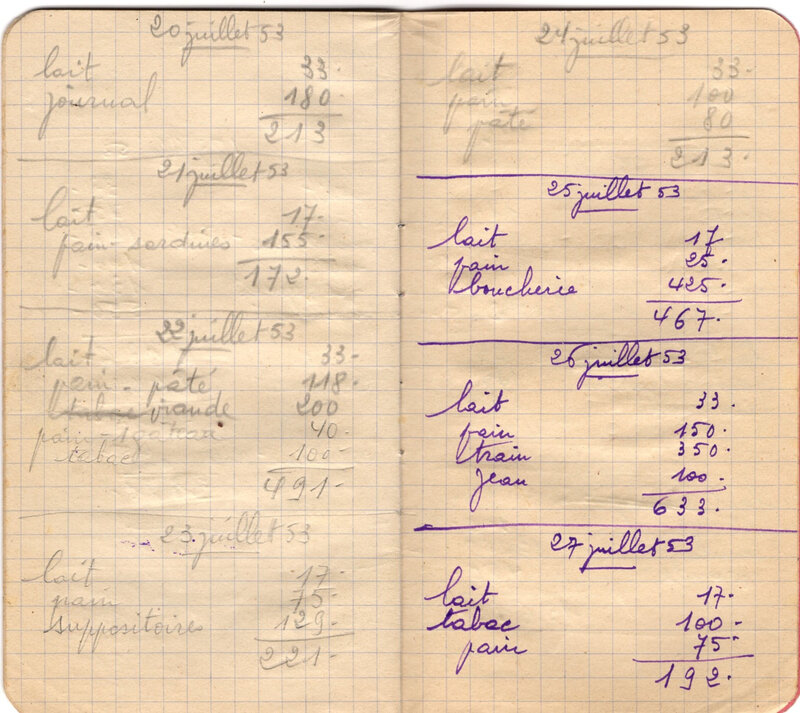 20 juillet 53
lait 33.
journal 180
213
21 juillet 53
lait 17.
pain - sardines 155.
172.
22 juillet 53
lait 33.
pain - pâté 118.
viande 200
pain - 40.
tabac 100.
491.
23 juillet 53
lait 17.
pain 75.
suppositoires 129.
221.
24 juillet 53
lait 33.
pain 100
pâté 80
213.
25 juillet 53
lait 17
pain 25.
boucherie 425.
467.
26 juillet 53
lait 33.
pain 150.
train 350.
Jean 100.
633.
27 juillet 53
lait 17.
tabac 100.
pain 75.
192.